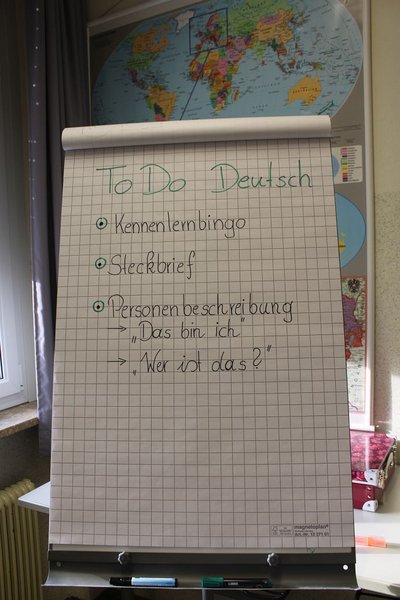 To Do Deutsch
Kennenlernbingo
Steckbrief
Personenbeschreibung
→ „Das bin ich"
→ „Wer ist das?"
magnetoplan®